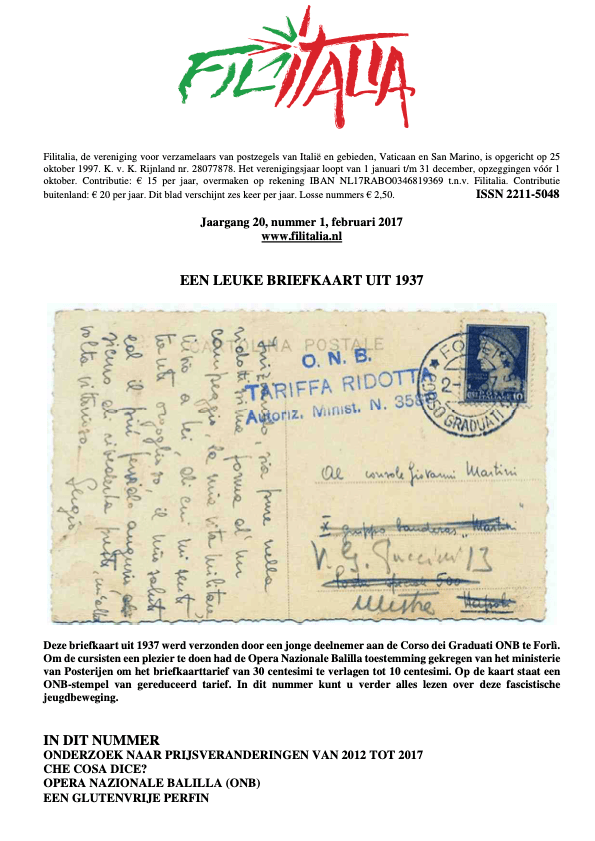 FILITALIA
Filitalia, de vereniging voor verzamelaars van postzegels van Italië en gebieden, Vaticaan en San Marino, is opgericht op 25
oktober 1997. K. v. K. Rijnland nr. 28077878. Het verenigingsjaar loopt van 1 januari t/m 31 december, opzeggingen vóór 1
oktober. Contributie: € 15 per jaar, overmaken op rekening IBAN NL17RABO0346819369 t.n.v. Filitalia. Contributie
buitenland: € 20 per jaar. Dit blad verschijnt zes keer per jaar. Losse nummers € 2,50. ISSN 2211-5048
Jaargang 20, nummer 1, februari 2017
www.filitalia.nl
EEN LEUKE BRIEFKAART UIT 1937
CARTOLINA POSTALE
O. N. B.
TARIFFA RIDOTTA
Autoriz. Minist. N. 358
CORSO GRADUATI
Al console Giovanni Martini
X gruppo banderas "Martini"
V. G. Puccini 13
Mestre Napoli
Deze briefkaart uit 1937 werd verzonden door een jonge deelnemer aan de Corso dei Graduati ONB te Forlì.
Om de cursisten een plezier te doen had de Opera Nazionale Balilla toestemming gekregen van het ministerie
van Posterijen om het briefkaarttarief van 30 centesimi te verlagen tot 10 centesimi. Op de kaart staat een
ONB-stempel van gereduceerd tarief. In dit nummer kunt u verder alles lezen over deze fascistische
jeugdbeweging.
IN DIT NUMMER
ONDERZOEK NAAR PRIJSVERANDERINGEN VAN 2012 TOT 2017
CHE COSA DICE?
OPERA NAZIONALE BALILLA (ONB)
EEN GLUTENVRIJE PERFIN